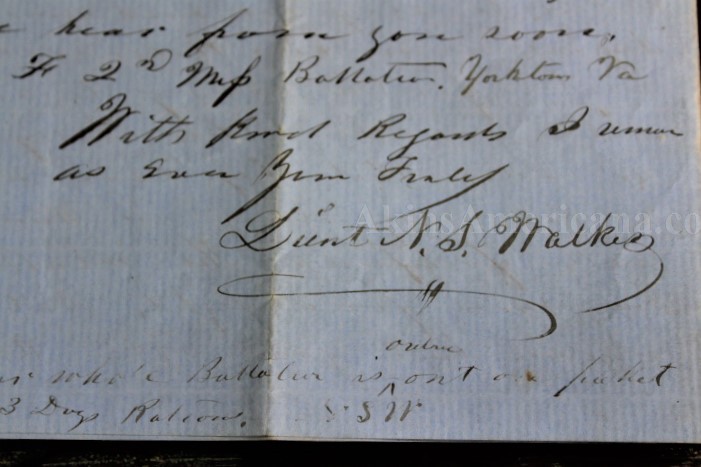 hear from you soon,
F 2nd Miss Battalion. Yorktown Va
With Kind Regards I remain
as Ever Your Truly
Lieut N. S. Walker
AkinsAmericana.co
order
whole Battalion is out on picket
3 Days Rations. N S W